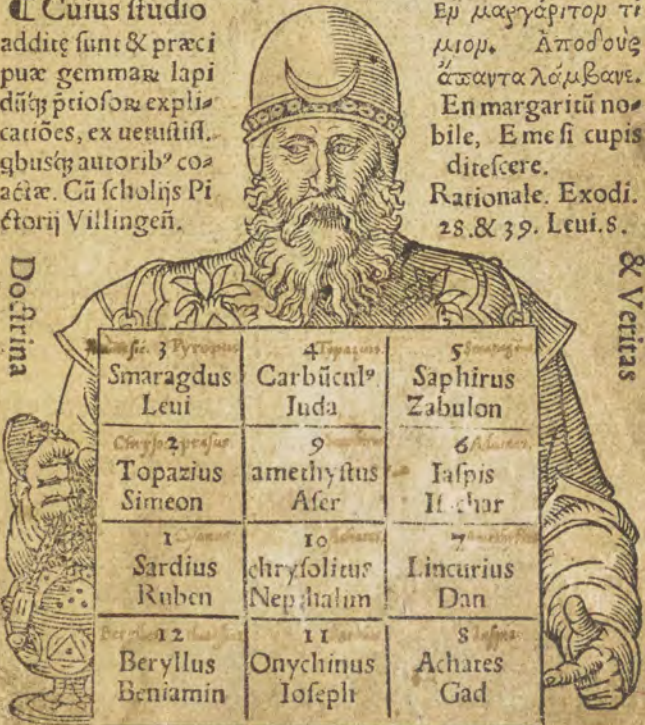 ❡ Cuius ſtudio
additę ſunt & præci
puæ gemmaꝝ lapi
dũqꝫ p̃tioſoꝝ expli⸗
catiões, ex uetuſtiſſ.
qbusqꝫ autoribꝰ co⸗
actæ. Cũ ſcholijs Pi
ctorij Villingeñ.
Εν μαργάριτον τί
μιον. Ἀποδοὺς
ἅπαντα λάμβανε.
En margaritũ no⸗
bile, E me ſi cupis
diteſcere.
Rationale. Exodi.
28. & 39. Leui. 8.
Doctrina
& Veritas
3
Smaragdus
Leui
4
Carbũculꝰ
Iuda
5
Saphirus
Zabulon
2
Topazius
Simeon
9
amethyſtus
Aſer
6
Iaſpis
1
Sardius
Ruben
10
chryſolitus
Nepthalim
7
Lincurius
Dan
12
Beryllus
Beniamin
11
Onychinus
Ioſeph
8
Achates
Gad